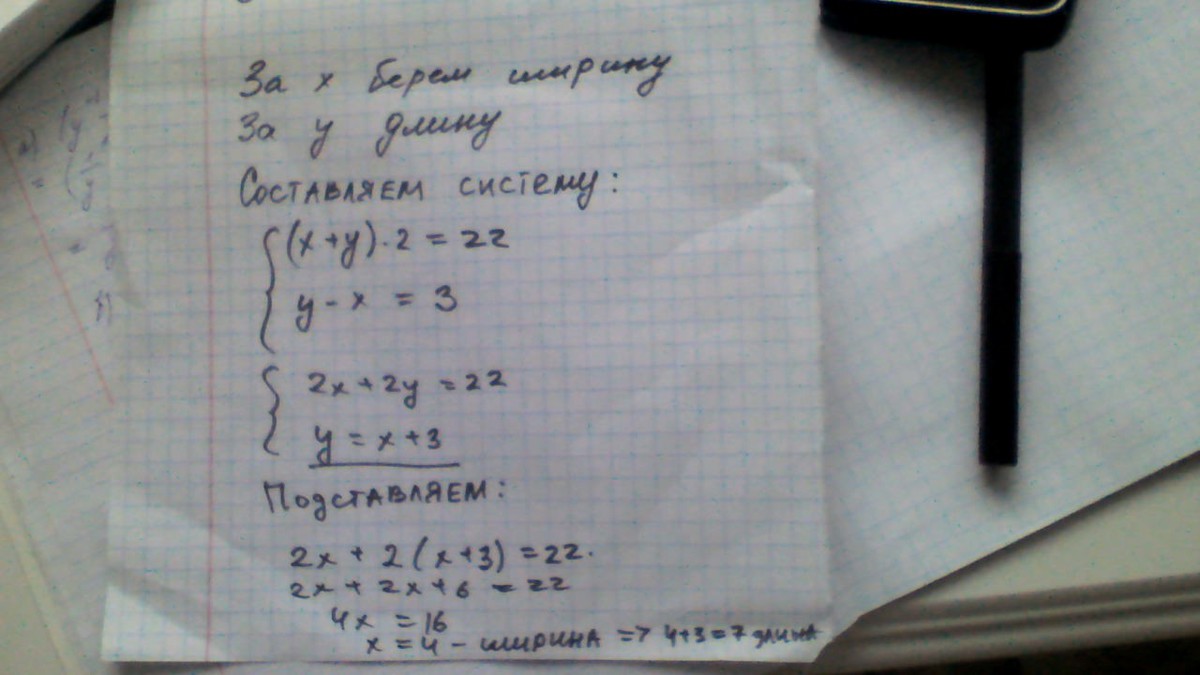 За x берем ширину
За y длину
Составляем систему:
(x+y)·2=22
y-x=3
2x+2y=22
y=x+3
Подставляем:
2x+2(x+3)=22.
2x+2x+6=22
4x=16
x=4-ширина => 4+3=7 длина